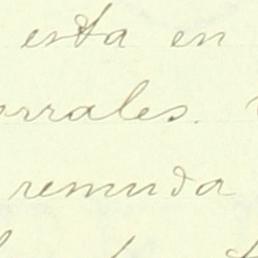 esta en
orrales.
remuda